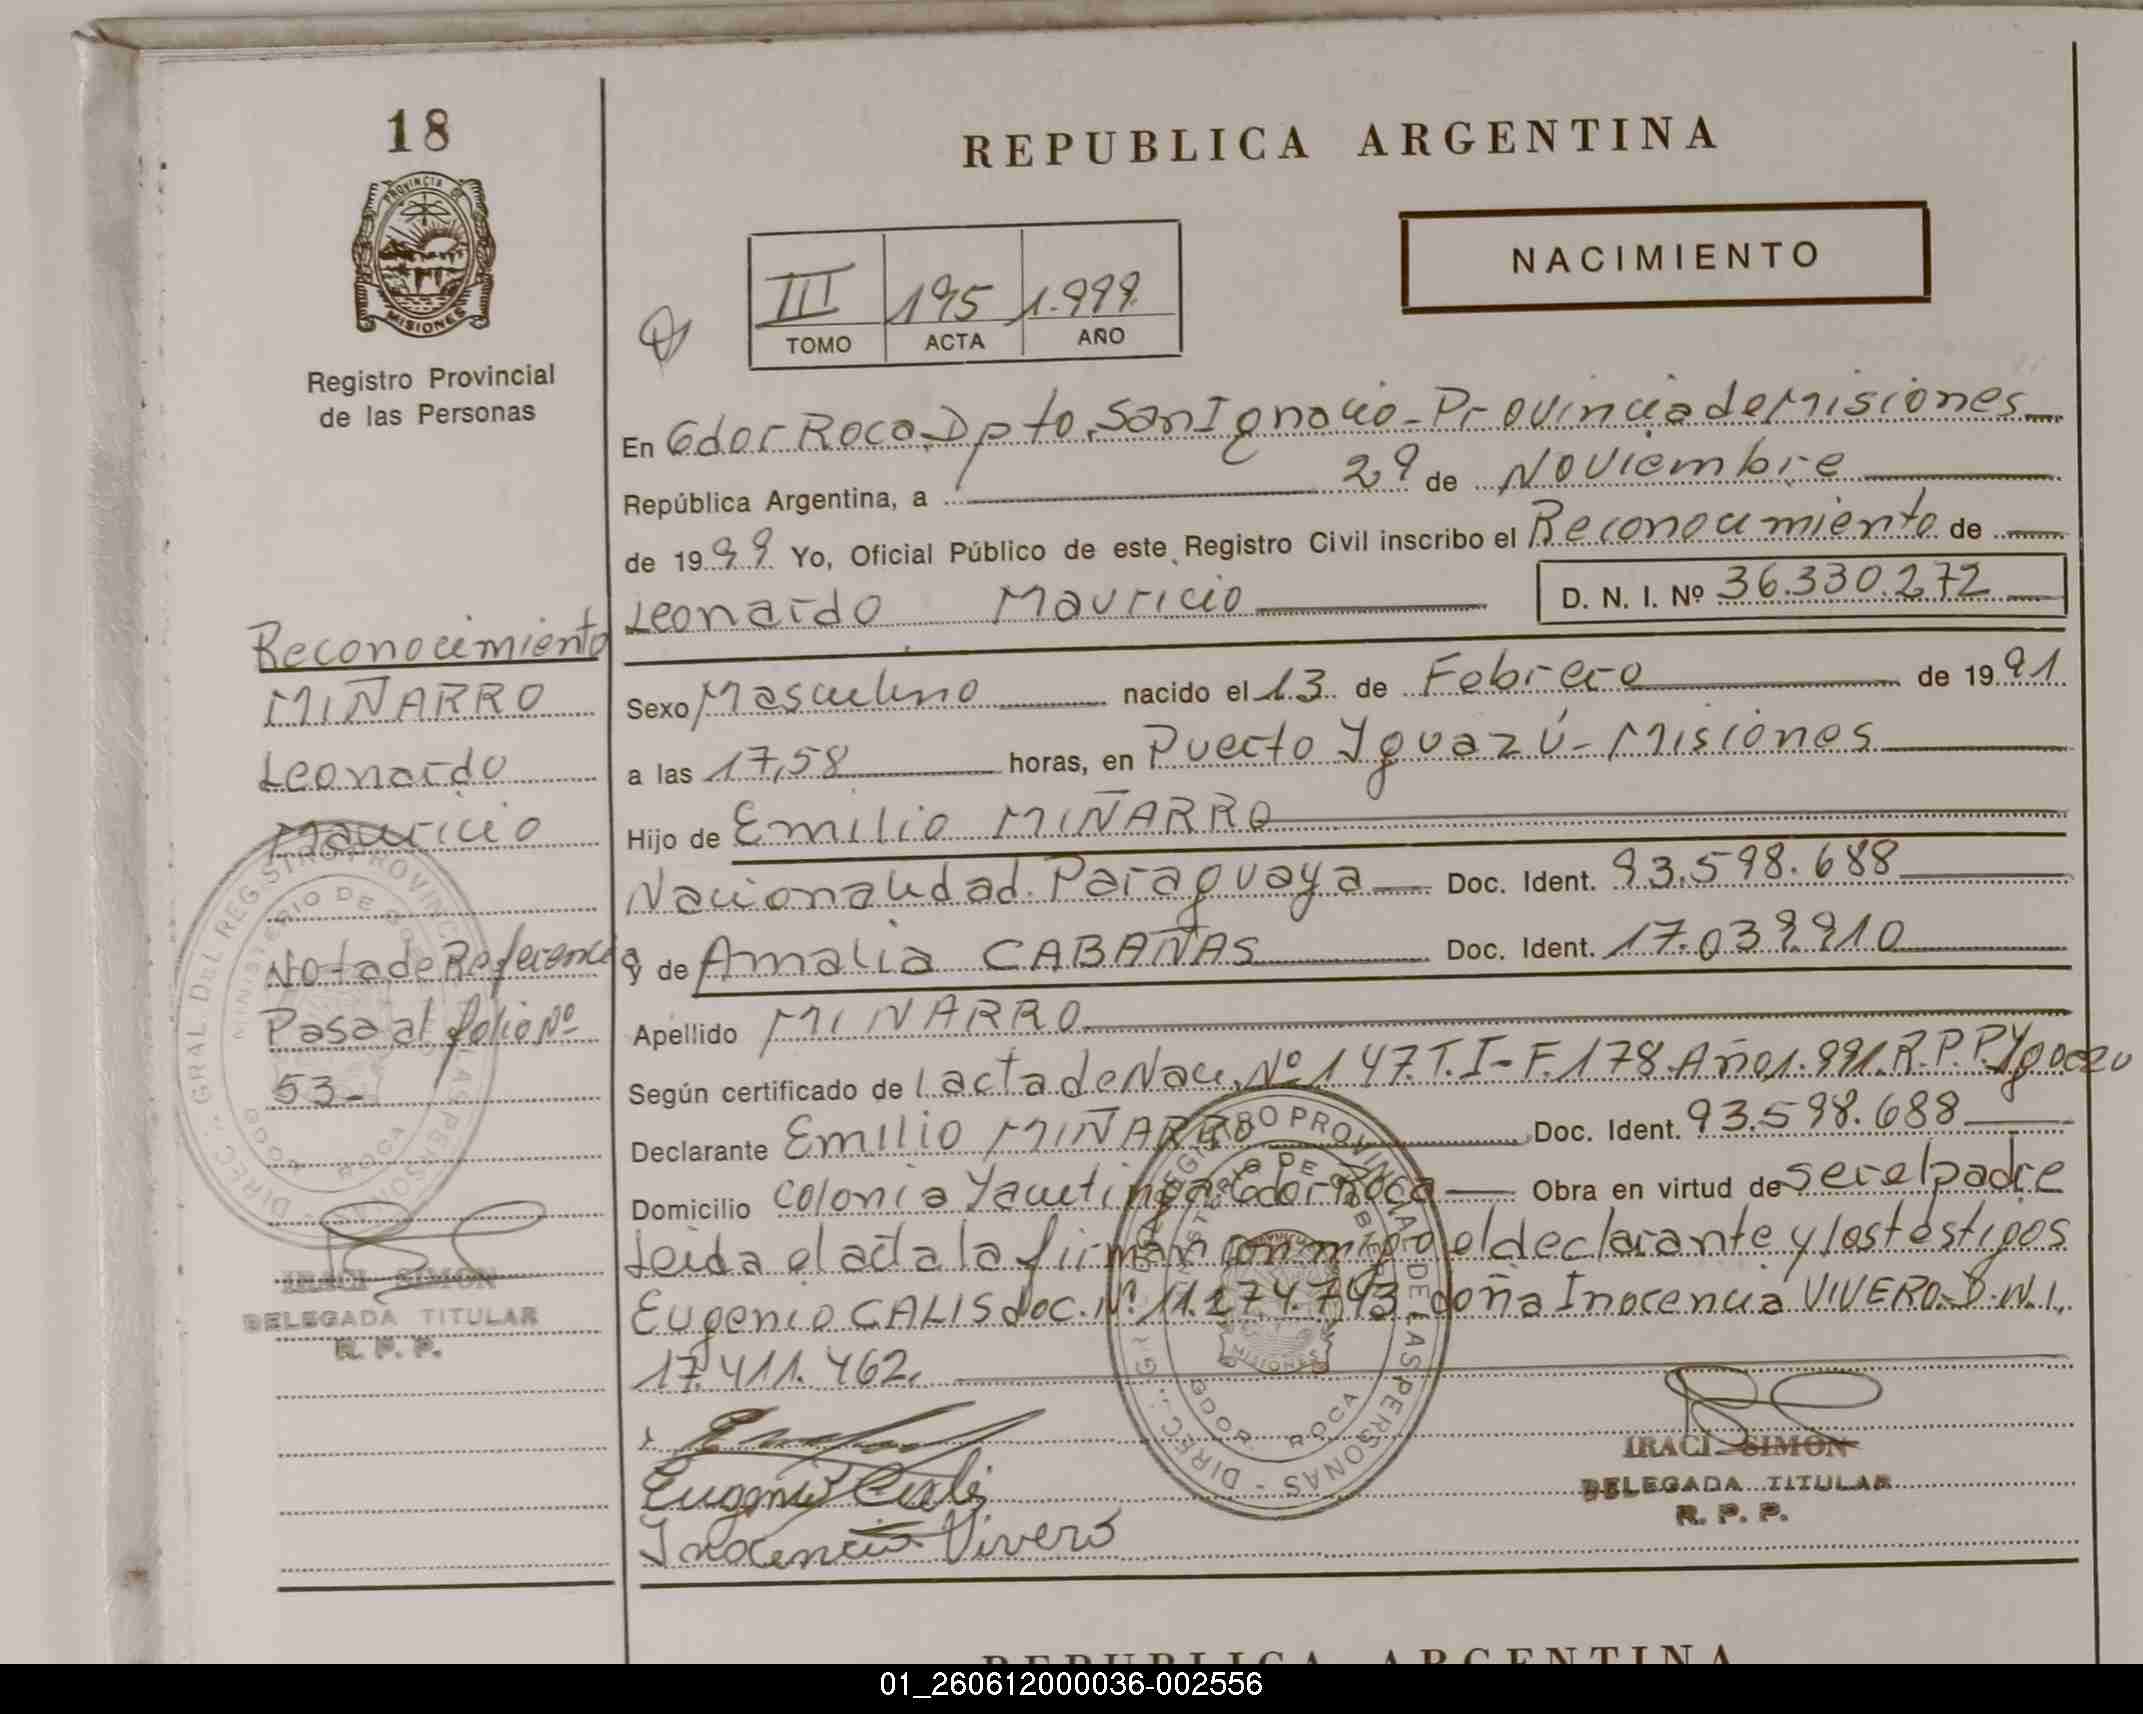 18
PROVINCIA DE
MISIONES
Registro Provincial
de las Personas
REPUBLICA ARGENTINA
NACIMIENTO
III 195 1.999
TOMO ACTA AÑO
En Gdor Roca. Dpto. San Ignacio - Provincia de Misiones
República Argentina, a 29 de Noviembre
de 1999 Yo, Oficial Público de este Registro Civil inscribo el Reconocimiento de
Leonardo Mauricio D. N. I. Nº 36.330.272
Sexo Masculino nacido el 13 de Febrero de 1991
a las 17,58 horas, en Puerto Yguazú - Misiones
Hijo de Emilio MIÑARRO
Nacionalidad Paraguaya Doc. Ident. 93.598.688
y de Amalia CABAÑAS Doc. Ident. 17.039.910
Apellido MIÑARRO
Según certificado de l acta de Nac. Nº 147. T. I - F. 178. Año 1.991. R. P. P. Yguazu
Declarante Emilio MIÑARRO Doc. Ident. 93.598.688
Domicilio Colonia Yacutinga. Gdor Roca Obra en virtud de ser el padre
Leida el acta la firman conmigo el declarante y los testigos
Eugenio CALIS doc. Nº 11.274.743 doña Inocencia VIVERO. D.N.I.
17.411.462.
Eugenio Calis
Inocencia Vivero
IRACI SIMON
DELEGADA TITULAR
R. P. P.
Reconocimiento
MIÑARRO
Leonardo
Mauricio
Nota de Referencia
Pasa al folio Nº
53-
IRACI SIMON
DELEGADA TITULAR
R. P. P.
DIREC. GRAL DEL REGISTRO PROVINCIAL DE LAS PERSONAS
MINISTERIO DE GOBIERNO
GDOR. ROCA
DIREC. GRAL DEL REGISTRO PROVINCIAL DE LAS PERSONAS
MINISTERIO DE GOBIERNO
MISIONES
GDOR. ROCA
REPUBLICA ARGENTINA
01_260612000036-002556